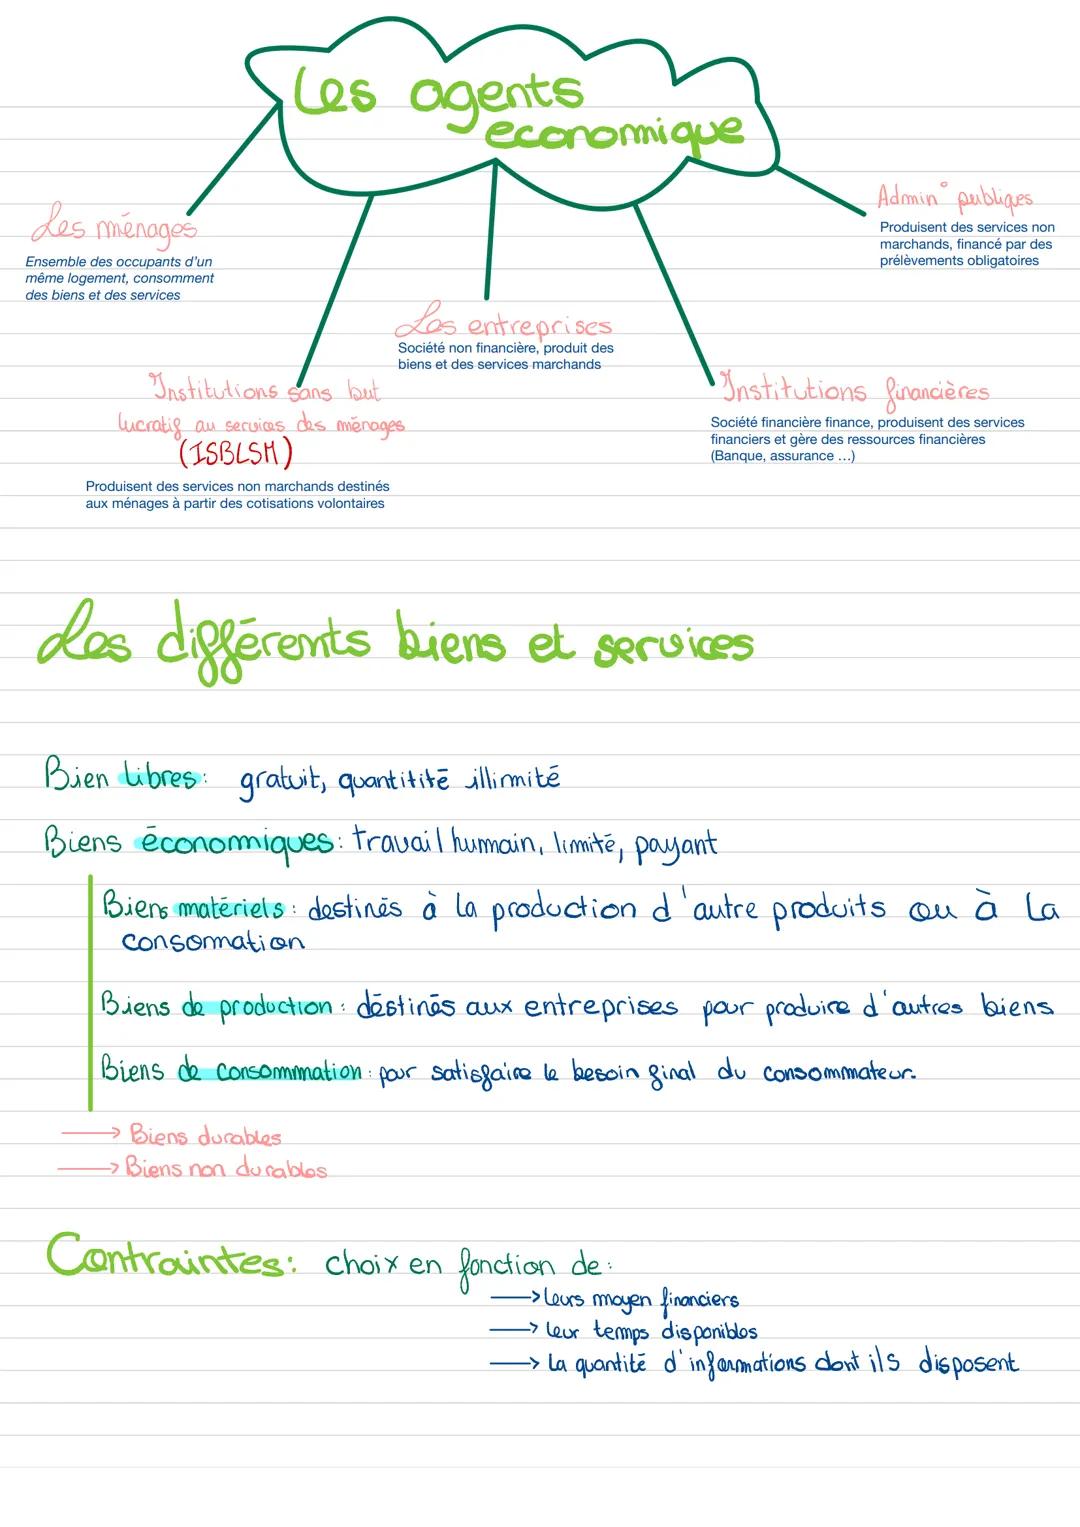 Les agents
economique
Les ménages
Ensemble des occupants d'un
même logement, consomment
des biens et des services
Admin° publiques
Produisent des services non
marchands, financé par des
prélèvements obligatoires
Les entreprises
Société non financière, produit des
biens et des services marchands
Institutions sans but
lucratif au services des ménages
(ISBLSM)
Produisent des services non marchands destinés
aux ménages à partir des cotisations volontaires
Institutions financières
Société financière finance, produisent des services
financiers et gère des ressources financières
(Banque, assurance ...)
Les différents biens et services
Bien libres : gratuit, quantitité illimité
Biens économiques : travail humain, limité, payant
Biens matériels : destinés à la production d'autre produits ou à la
consommation
Biens de production : déstinés aux entreprises pour produire d'autres biens
Biens de consommmation : pour satisfaire le besoin final du consommateur.
→ Biens durables
→ Biens non durables
Contraintes : choix en fonction de :
→ leurs moyen financiers
→ leur temps disponibles
→ la quantité d'informations dont ils disposent